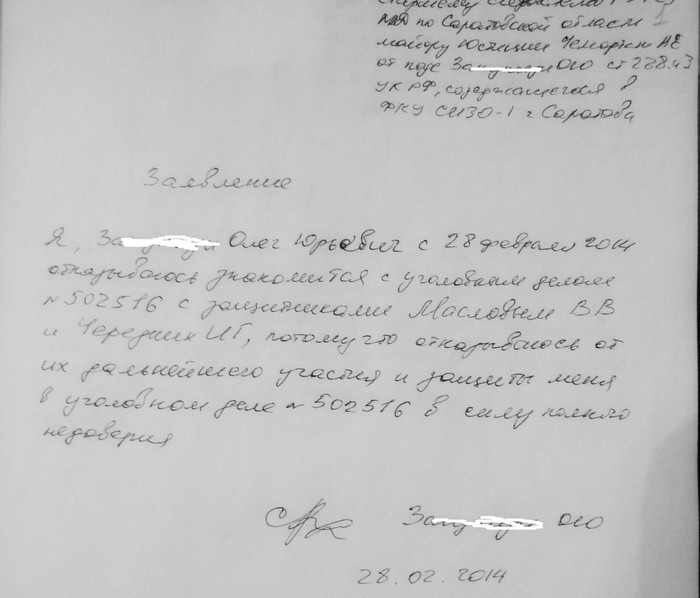 по Саратовской области
майору Юстиции
от подс За ОЮ ст 228.43
УК РФ, содержащегося в
ФКУ СИЗО-1 г Саратова
Заявление
Я, За Олег Юрьевич с 28 февраля 2014
отказываюсь знакомится с уголовным делом
№502516 с защитниками Масловым ВВ
и Чередник ИГ, потому что отказываюсь от
их дальнейшего участия и защиты меня
в уголовном деле №502516 в силу полного
недоверия
За ОЮ
28.02.2014